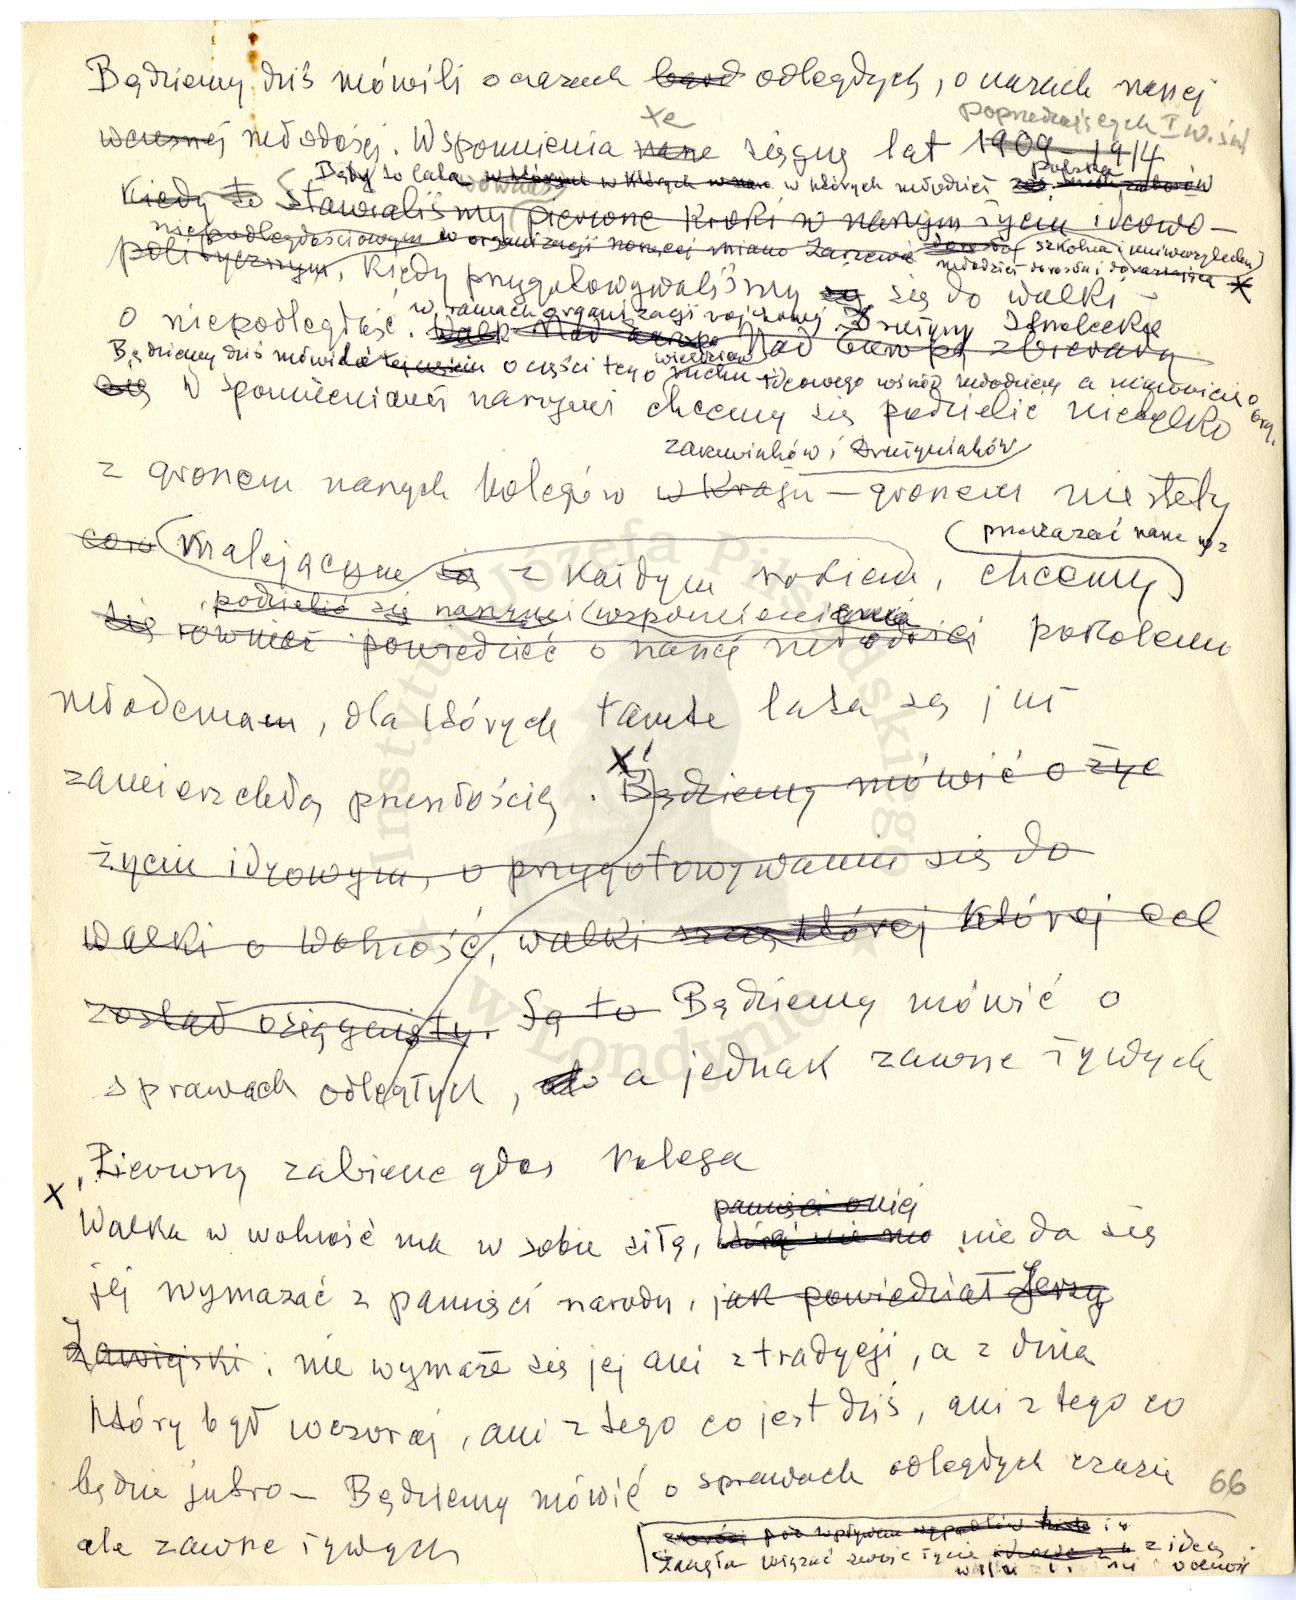 Będziemy dziś mówili o czasach odległych, o czasach naszej
wczesnej młodości. Wspomnienia nasze sięgną lat 1909-1914
że
poprzedzających I w. św
Kiedy to stawialiśmy pierwsze kroki w naszym życiu ideowo-
Były to lata w których młodzież polska
niepodległościowym w organizacji noszącej miano Zarzewie
szkolna i uniwersytecka
młodzież dorosła i dorastająca x
politycznym, kiedy przygotowywaliśmy się do walki
o niepodległość. Nad Europą zbierały
w ramach organizacji wojskowej Drużyny Strzeleckie
Będziemy dziś mówić o części tego ruchu ideowego wśród młodzieży a mianowicie o
się Wspomnieniami naszymi chcemy się podzielić nie tylko
org.
zarzewiaków i Drużyniaków
z gronem naszych kolegów w Kraju – gronem niestety
malejącym się z każdym rokiem, chcemy
przekazać nasze
podzielić się naszymi wspomnieniami
się również powiedzieć o naszej młodości pokoleniu
młodemu, dla których tamte lata są już
zamierzchłą przeszłością. x Będziemy mówić o życ
życiu ideowym, o przygotowywaniu się do
walki o wolność, walki której której cel
został osiągnięty. Są to Będziemy mówić o
sprawach odległych, a jednak zawsze żywych
Instytut Józefa Piłsudskiego w Londynie
Pierwszy zabierze głos kolega
x Walka w wolność ma w sobie siłę, nie da się
pamięci o niej
jej wymazać z pamięci narodu, jak powiedział Jerzy
Zawiejski. nie wymaże się jej ani z tradycji, a z dnia
który był wczoraj, ani z tego co jest dziś, ani z tego co
będzie jutro – Będziemy mówić o sprawach odległych czasie
66
ale zawsze żywych
pod wpływem wypadków
zaczęła wiązać swoje życie z ideą